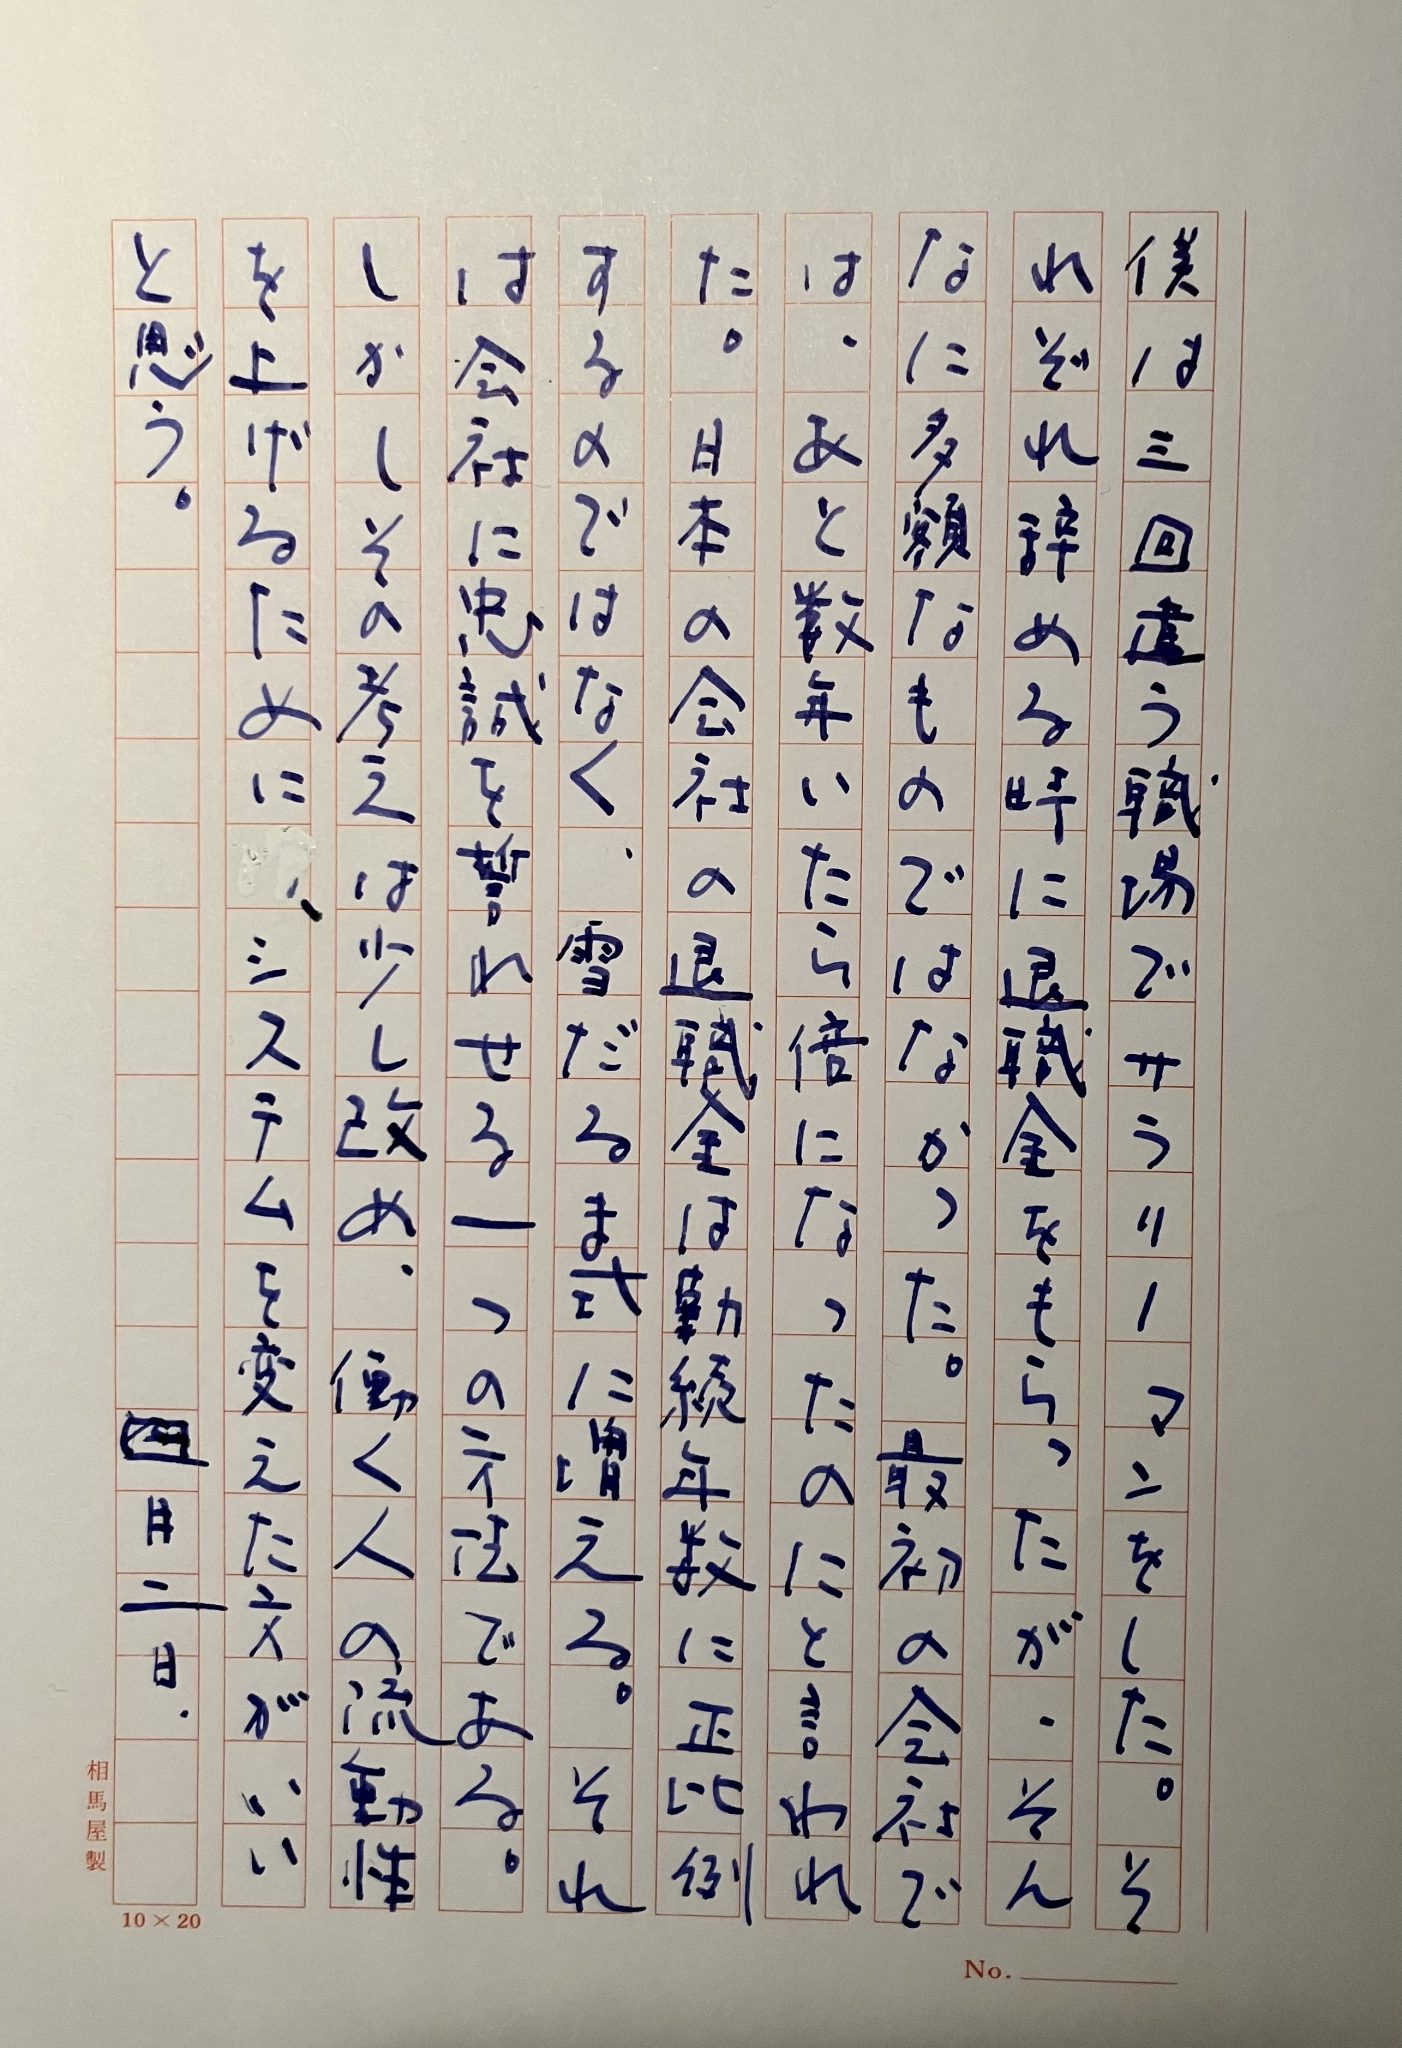 僕は三回違う職場でサラリーマンをした。そ
れぞれ辞める時に退職金をもらったが、そん
なに多額なものではなかった。最初の会社で
は、あと数年いたら倍になったのにと言われ
た。日本の会社の退職金は勤続年数に正比例
するのではなく、雪だるま式に増える。それ
は会社に忠誠を誓わせる一つの方法である。
しかしその考えは少し改め、働く人の流動性
を上げるために、システムを変えた方がいい
と思う。
四月二日.
相馬屋製
10×20
No.